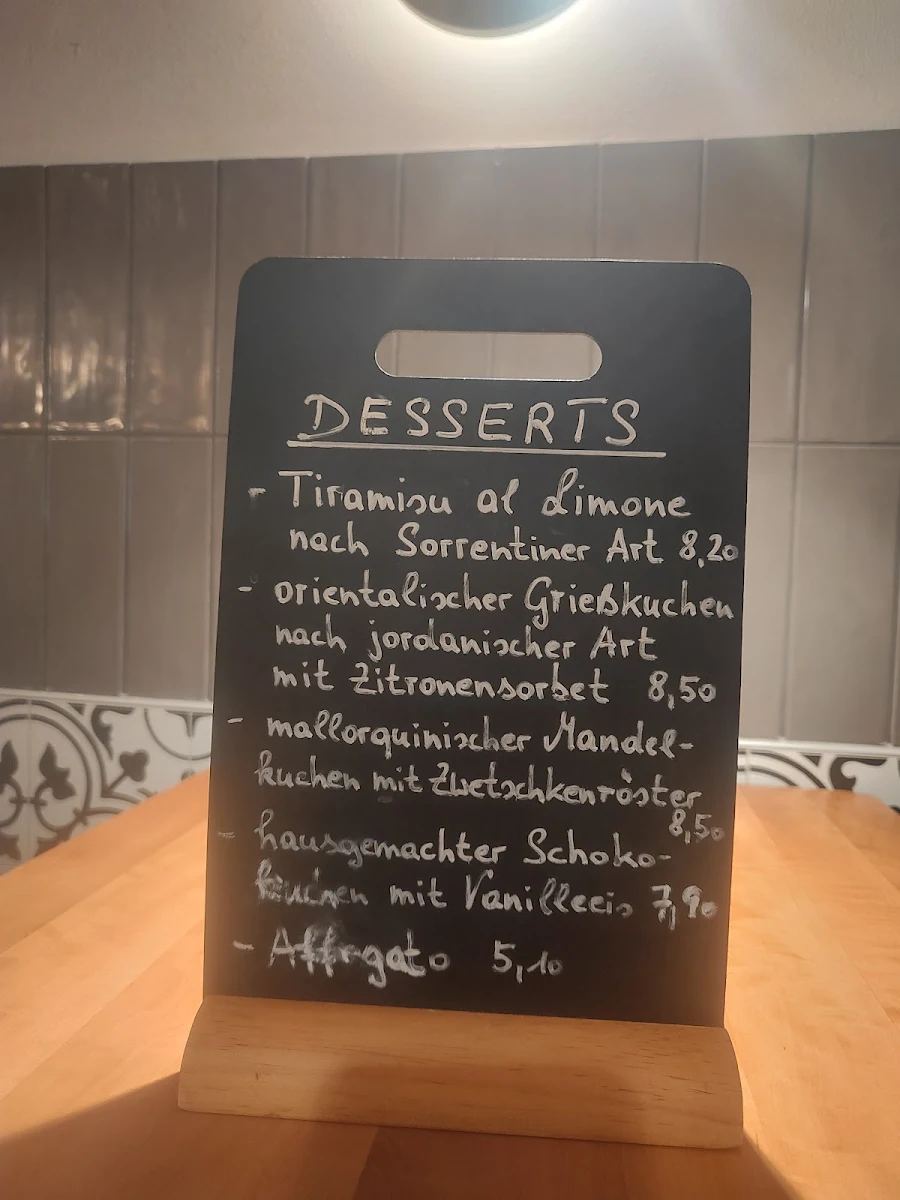 DESSERTS
- Tiramisu al Limone
nach Sorrentiner Art 8,20
- orientalischer Grießkuchen
nach jordanischer Art
mit Zitronensorbet 8,50
- mallorquinischer Mandel-
kuchen mit Zwetschkenröster
8,50
- hausgemachter Schoko-
kuchen mit Vanilleeis 7,90
- Affogato 5,10